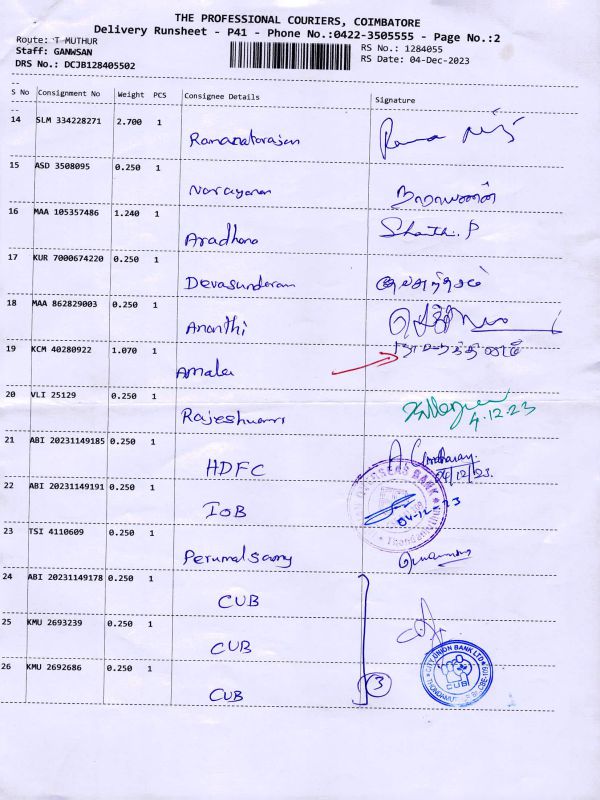 THE PROFESSIONAL COURIERS, COIMBATORE
Delivery Runsheet - P41 - Phone No.:0422-3505555 - Page No.:2
Route: T MUTHUR
RS No.: 1284055
Staff: GANWSAN
RS Date: 04-Dec-2023
DRS No.: DCJB128405502
S No Consignment No Weight PCS Consignee Details Signature
14 SLM 334228271 2.700 1
Ramanatarajan Rama
15 ASD 3508095 0.250 1
Narayanan நாராயணன்
16 MAA 105357486 1.240 1
Aradhana Shanthi. P
17 KUR 7000674220 0.250 1
Devasundaram
18 MAA 862829003 0.250 1
Ananthi
19 KCM 40280922 1.070 1
Amala
20 VLI 25129 0.250 1
Rajeshwari
4.12.23
21 ABI 20231149185 0.250 1
HDFC
04/12/23.
22 ABI 20231149191 0.250 1
OVERSEAS BANK
IOB 04-12-23
23 TSI 4110609 0.250 1
Perumalsamy
24 ABI 20231149178 0.250 1
CUB
25 KMU 2693239 0.250 1
CUB
26 KMU 2692686 0.250 1
CUB 3
CITY UNION BANK LTD
CUB